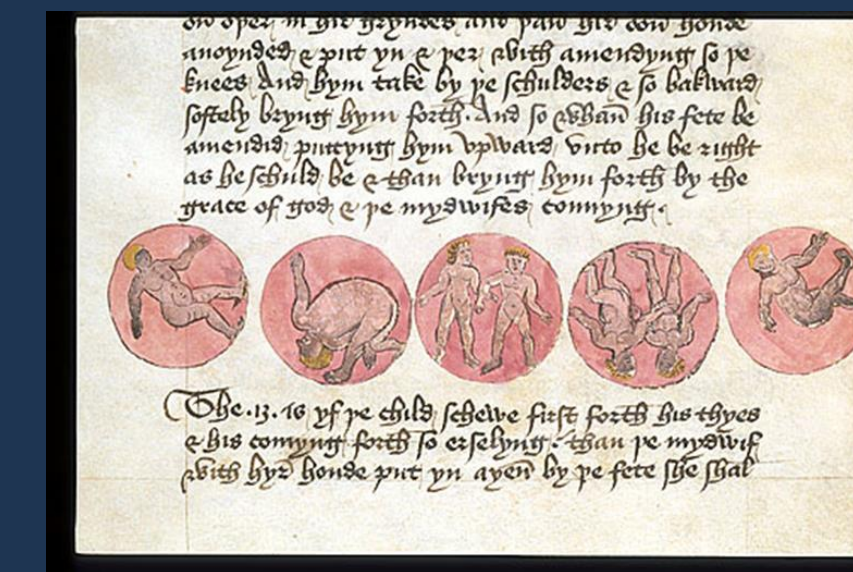 on oþer in hir gryndes and paw hir don honde
anoynded & put yn & þer with amendyng so þe
knees And hym take by þe schulders & so bakward
softely bryng hym forth. And so whan̄ his fete be
amendid puttyng hym vpward vnto he be right
as he schuld be & than bryng hym forth by the
grace of god & þe mydwifes connyng.
The .13. is yf þe child schewe first forth his thyes
& his comyng forth so erselyng. than þe mydwif
with hyr̄ honde put yn ayen̄ by þe fete she shal